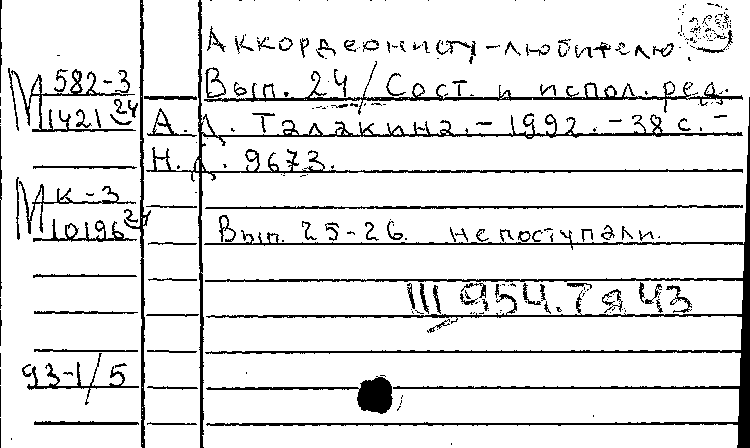 Аккордеонисту-любителю.
М 582-3
1421 24
Вып. 24 / Сост. и испол. ред.
А. Л. Талакина. - 1992. - 38 с. -
Н. Д. 9673.
М К-3
10196 24
Вып. 25-26. не поступали.
Ш 954.7 я 43
93-1/5